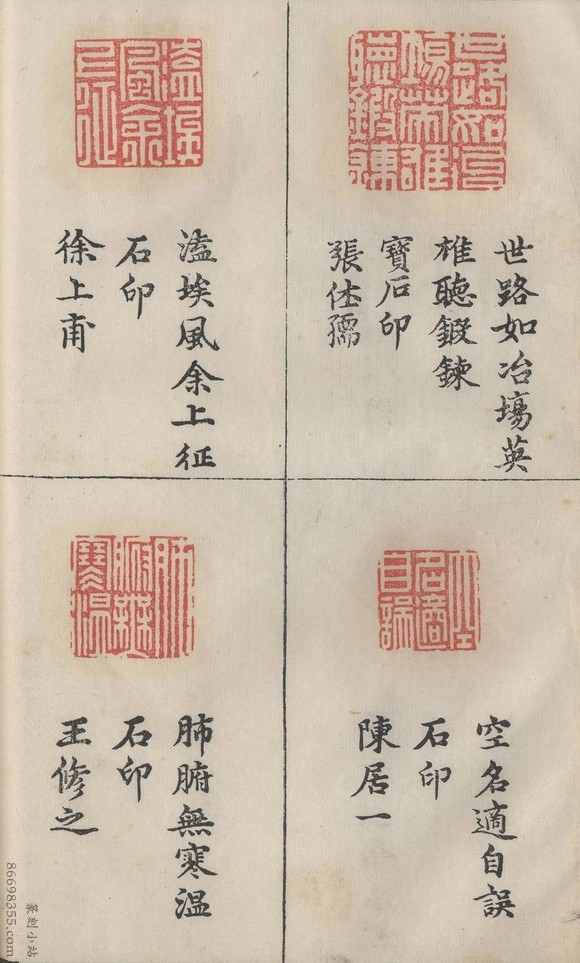 世路如冶塲英
雄聽鍛鍊
寶石印
張仕孺
溘埃風余上征
石印
徐上甫
空名適自誤
石印
陳居一
肺腑無寒温
石印
王修之
篆刻小站
86698355.com